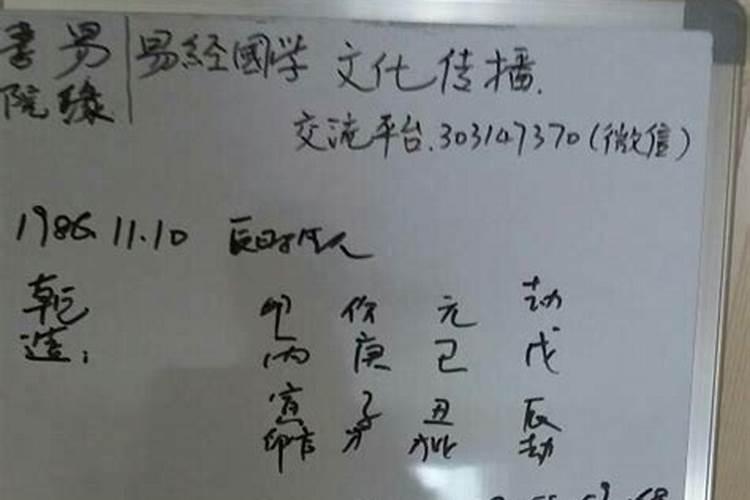 書易 易經國学 文化传播.
院缘 交流平台.303147370(微信)
1986.11.10 辰时生人
乾 印 伤 元 劫
造: 丙 庚 己 戊
寅 子 丑 辰
印 才 比 劫